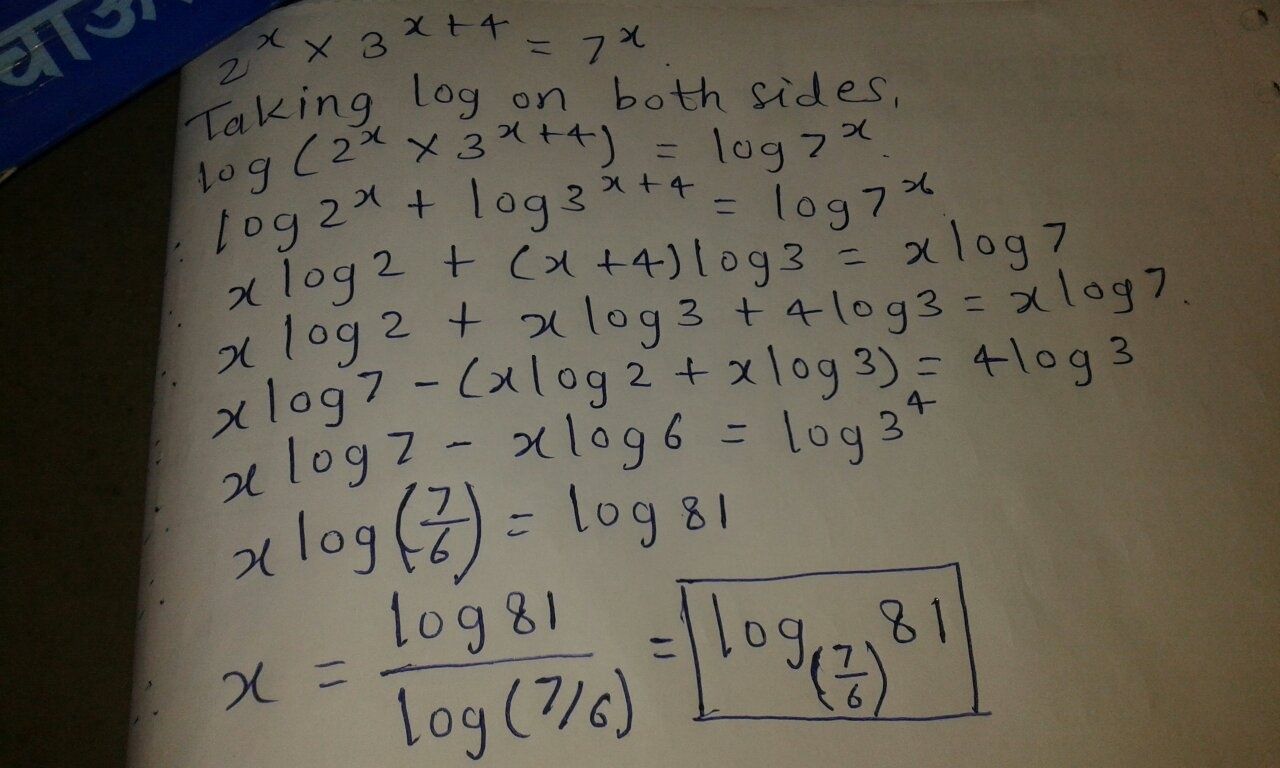 चाऊ
2^x × 3^(x+4) = 7^x.
Taking log on both sides,
log (2^x × 3^(x+4)) = log 7^x.
∴ log 2^x + log 3^(x+4) = log 7^x
∴ x log 2 + (x+4) log 3 = x log 7
∴ x log 2 + x log 3 + 4 log 3 = x log 7.
∴ x log 7 - (x log 2 + x log 3) = 4 log 3
∴ x log 7 - x log 6 = log 3^4
∴ x log (7/6) = log 81
∴ x = log 81 / log (7/6) = log_(7/6) 81